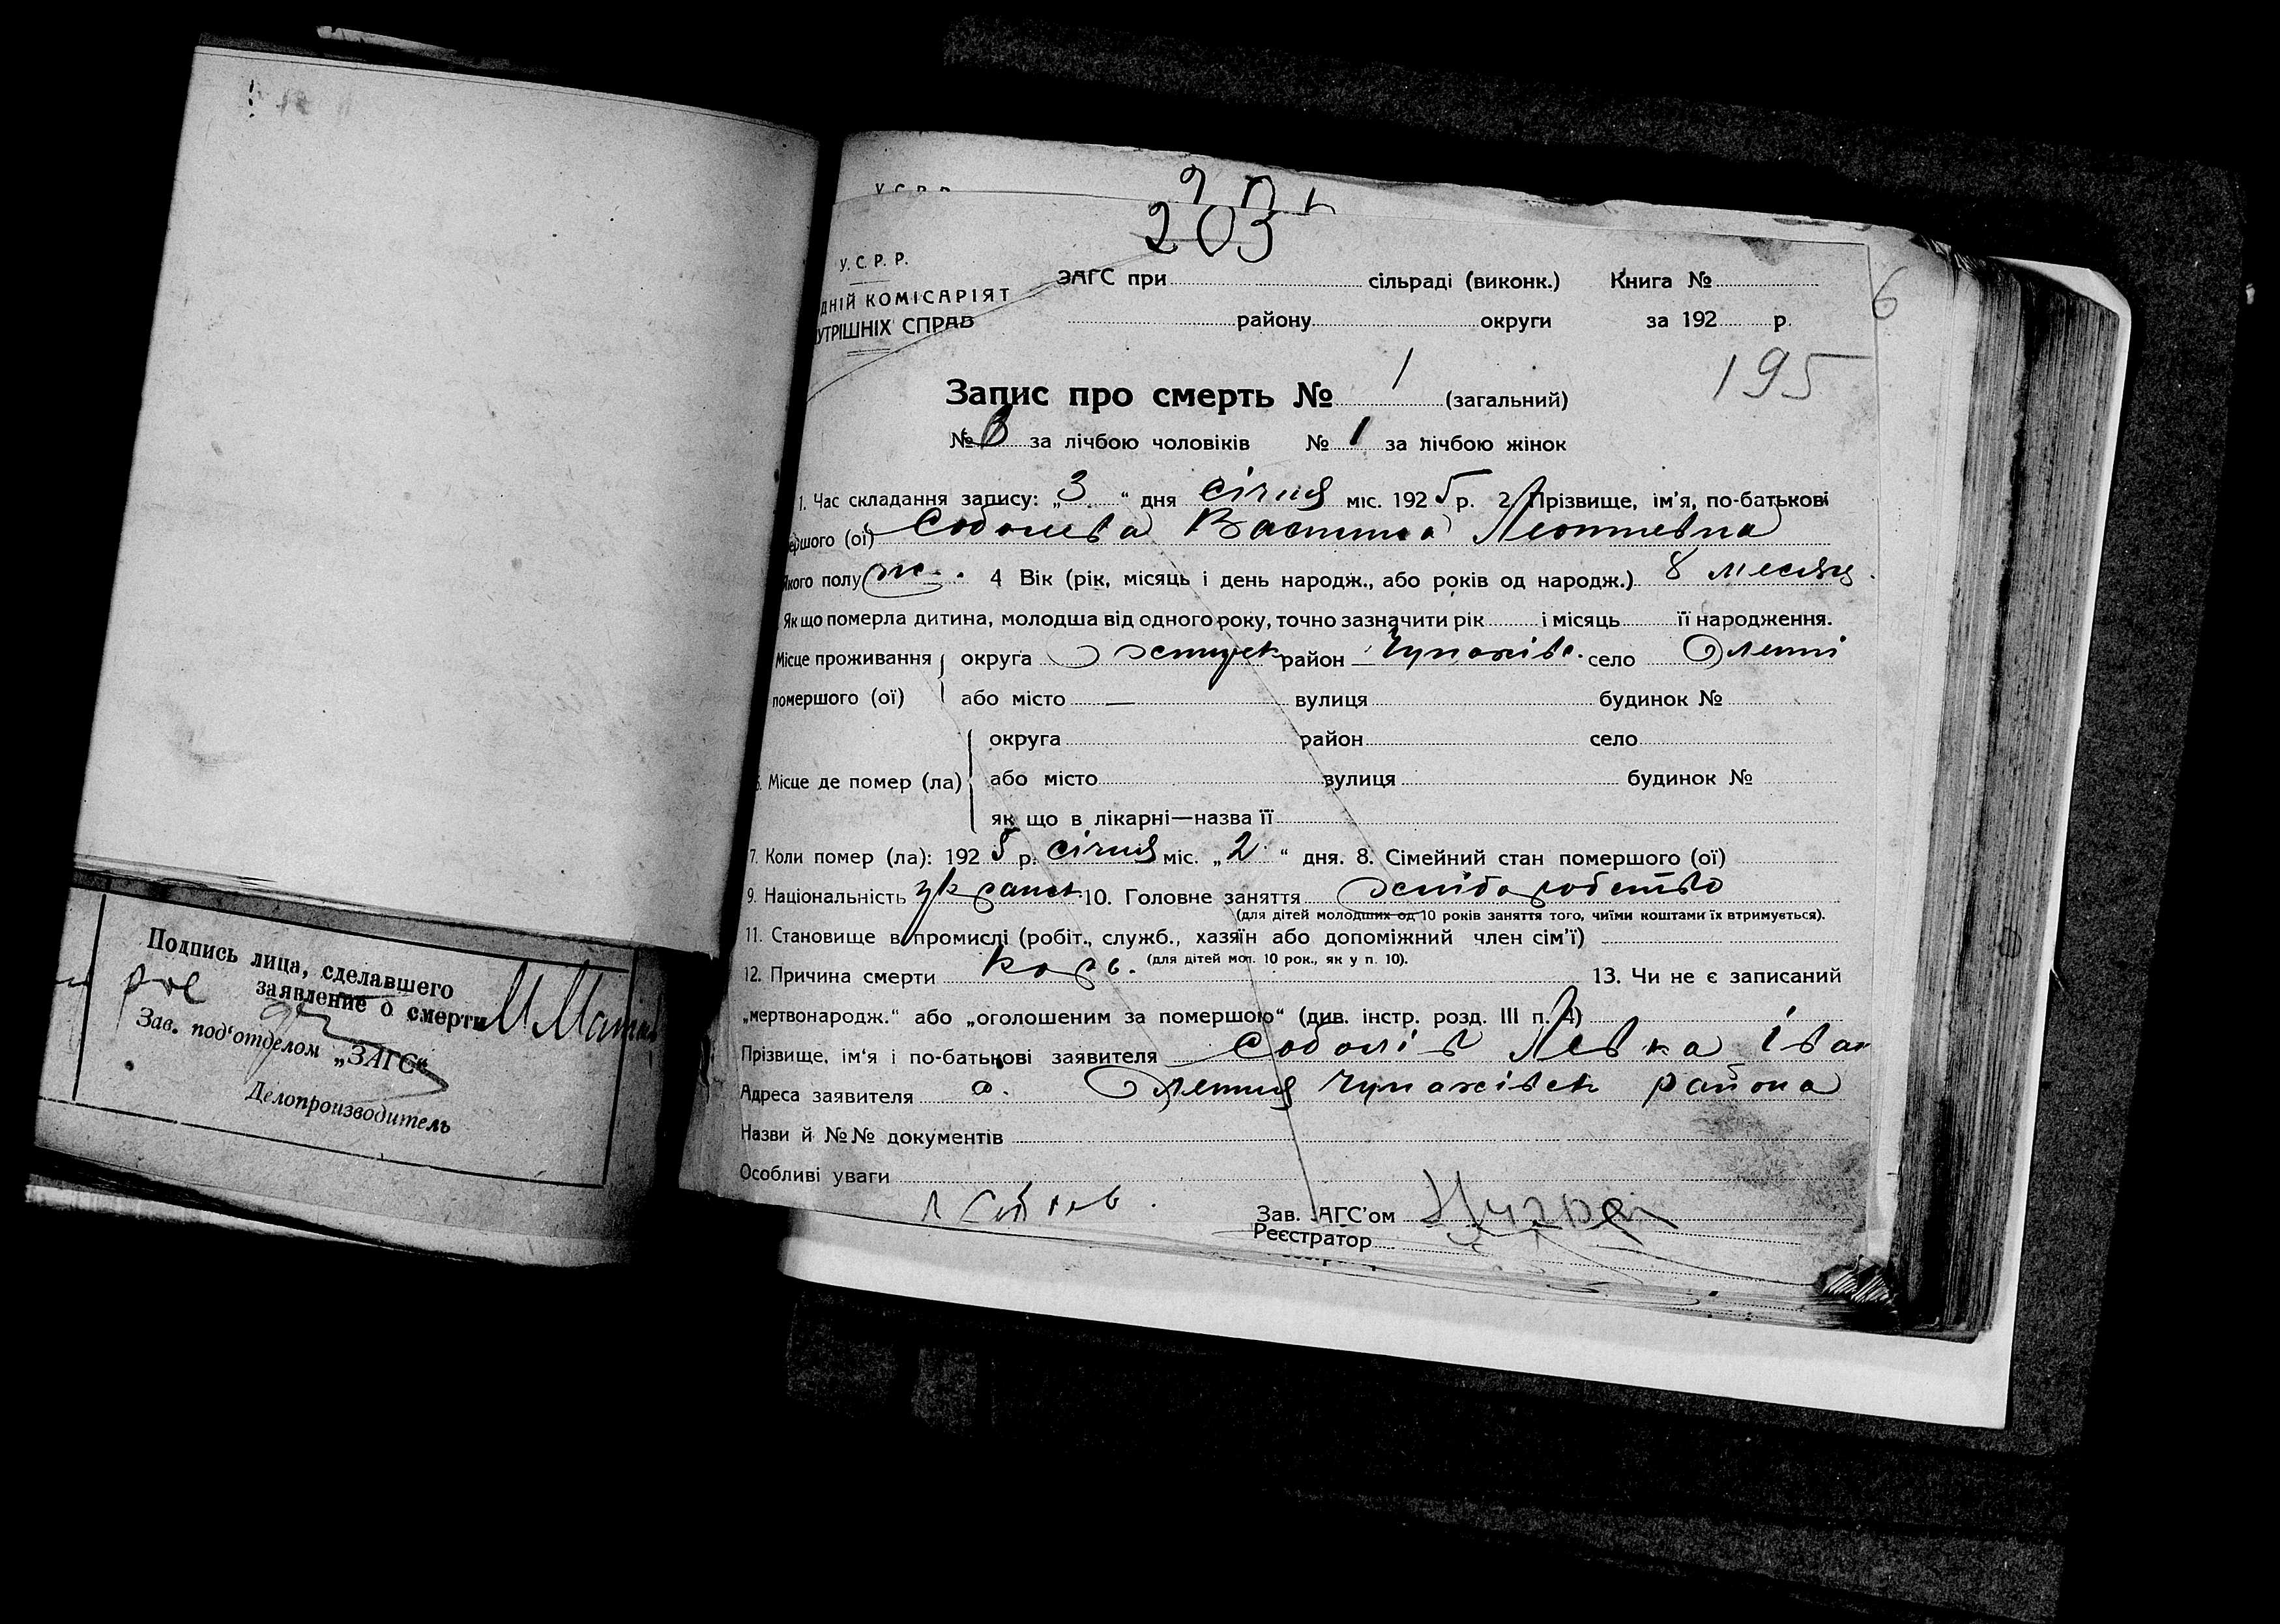 203
У. С. Р. Р.
ДНІЙ КОМІСАРІЯТ
УТРІШНІХ СПРАВ
ЗАГС при сільраді (виконк.) Книга №
району округи за 192 р.
6
195
Запис про смерть № 1 (загальний)
№ за лічбою чоловіків № 1 за лічбою жінок
1. Час складання запису: „3“ дня січня міс. 1925 р. 2. Прізвище, ім'я, по-батькові
ершого (ої) Соболева
якого полу ж. 4 Вік (рік, місяць і день народж., або років од народж.) 8 месяц
Як що померла дитина, молодша від одного року, точно зазначити рік і місяць її народження.
Місце проживання округа район село
помершого (ої) або місто — вулиця будинок №
округа район село
6. Місце де помер (ла) або місто вулиця будинок №
як що в лікарні—назва її
7. Коли помер (ла): 1925 р. січня міс. „2“ дня. 8. Сімейний стан помершого (ої)
9. Національність 10. Головне заняття
(для дітей молодших од 10 років заняття того, чиїми коштами їх втримується).
11. Становище в промислі (робіт., служб., хазяїн або допоміжний член сім'ї)
(для дітей мол. 10 рок., як у п. 10).
12. Причина смерти Корь. 13. Чи не є записаний
„мертвонародж.“ або „оголошеним за помершого“ (див. інстр. розд. III п. 4)
Прізвище, ім'я і по-батькові заявителя Соболів Левка Іван
Адреса заявителя района
Назви й №№ документів
Особливі уваги
Зав. ЗАГС'ом
Реєстратор
Подпись лица, сделавшего
заявление о смерти
Зав. под'отделом „ЗАГС“
Делопроизводитель